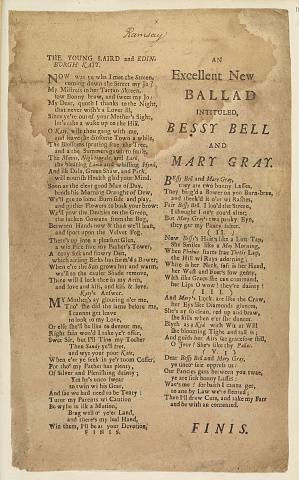 Ramsay
THE YOUNG LAIRD and EDIN-
BURGH KATY.
NOW wat ye wha I met the Streen,
coming down the Street my Jo?
My Mistress in her Tartan Skreen,
fow bonny braw, and sweet my Jo:
My Dear, quoth I thanks to the Night,
that never wish'd a Lover ill,
Since ye're out of your Mother's Sight,
let's take a wake up to the Hill.
O Katy wilt thou gang with me,
and leave the dinsome Town a while,
The Blossom's sprouting frae the Tree,
and a' the Summer's gawn to smile,
The Mavis, Nightingale, and Lark,
the bleeting Lambs and whistling Hynd,
In ilk Dale, Green Shaw, and Park,
will nourish Health glad your Mind.
Soon as the clear good Man of Day,
bends his Morning Draught of Dew,
We'll gae to some Burn-side and play,
and gather Flowers to busk your brow:
We'll pow the Daisies on the Green,
the lucken Gowans from the Bog,
Between Hands now & than we'll lean,
and sport upon the Velvet Fog.
There's up into a pleasant Glen,
a wie Piece frae my Father's Tower,
A cozy soft and flowry Den,
which circling Birks has form'd a Bower;
When e'er the Sun grows het and warm,
we'll to the cauler Shade remove,
There will I lock thee in my Arm,
and love and kiss, and kiss & love.
Katy's Answer.
MY Mother's ay glouring o'er me,
Tho' she did the same before me,
I cannot get leave
to look to my Love,
Or else she'll be like to devour me,
Right fain wou'd I take ye'r offer,
Sweet Sir, but I'll tine my Tocher
Then Sandy ye'll fret,
and wyt your poor Kate,
When e'er ye keek in ye'r toom Coffer,
For tho' my Father has plenty,
Of Silver and Plenishing dainty;
Yet he's unco sweer
to twin wi his Gear,
And sae we had need to be Tenty:
Tutor my Parents wi Caution
Be wylie in ilk a Motion,
Brag well o' ye'er Land,
and there's my leal Hand,
Win them, I'll be at your Devotion,
FINIS.
AN
Excellent New
BALLAD
INTITULED,
BESSY BELL
AND
MARY GRAY.
Bessy Bell and Mary Gray,
they are twa bonny Lasses,
They bigg'd a Bower on yon Burn-brae,
and theek'd it o'er wi Rashes,
Fair Bessy Bell, I loo'd the Streen,
I thought I ne'er could alter,
But Mary Gray's twa pawky Eyn,
they gar my Fancy falter.
[II]
Now Bessy's Hair's like a Lint Tap,
She Smiles like a May Morning,
When Phœbus starts frae Thetis Lap,
the Hill wi Rays adorning:
White is her Neck, saft is her Hand,
her Waft and Foot's fow genty,
With ilka Grace she can command,
her Lips O wow! they're dainty!
[III]
And Mary's Locks are like the Craw,
her Eyn like Diamonds glances,
She's ay so clean, red up and braw,
she kills when e'er she dances:
Blyth as a Kid with Wit at Will
She blooming Tight and tall is;
And guids her Airs sae gracefow still,
O Jove! She's like thy Pallas.
[IV]
Dear Bessy Bell and Mary Gray,
ye unco sair oppress us:
Our Fancies gees between you twae,
ye are sick bonny Lasses:
Wae's me! for baith I canna get,
to ane by Law we're stented;
Then I'll draw Cuts, and take my Fate
and be with ane contented.
FINIS.